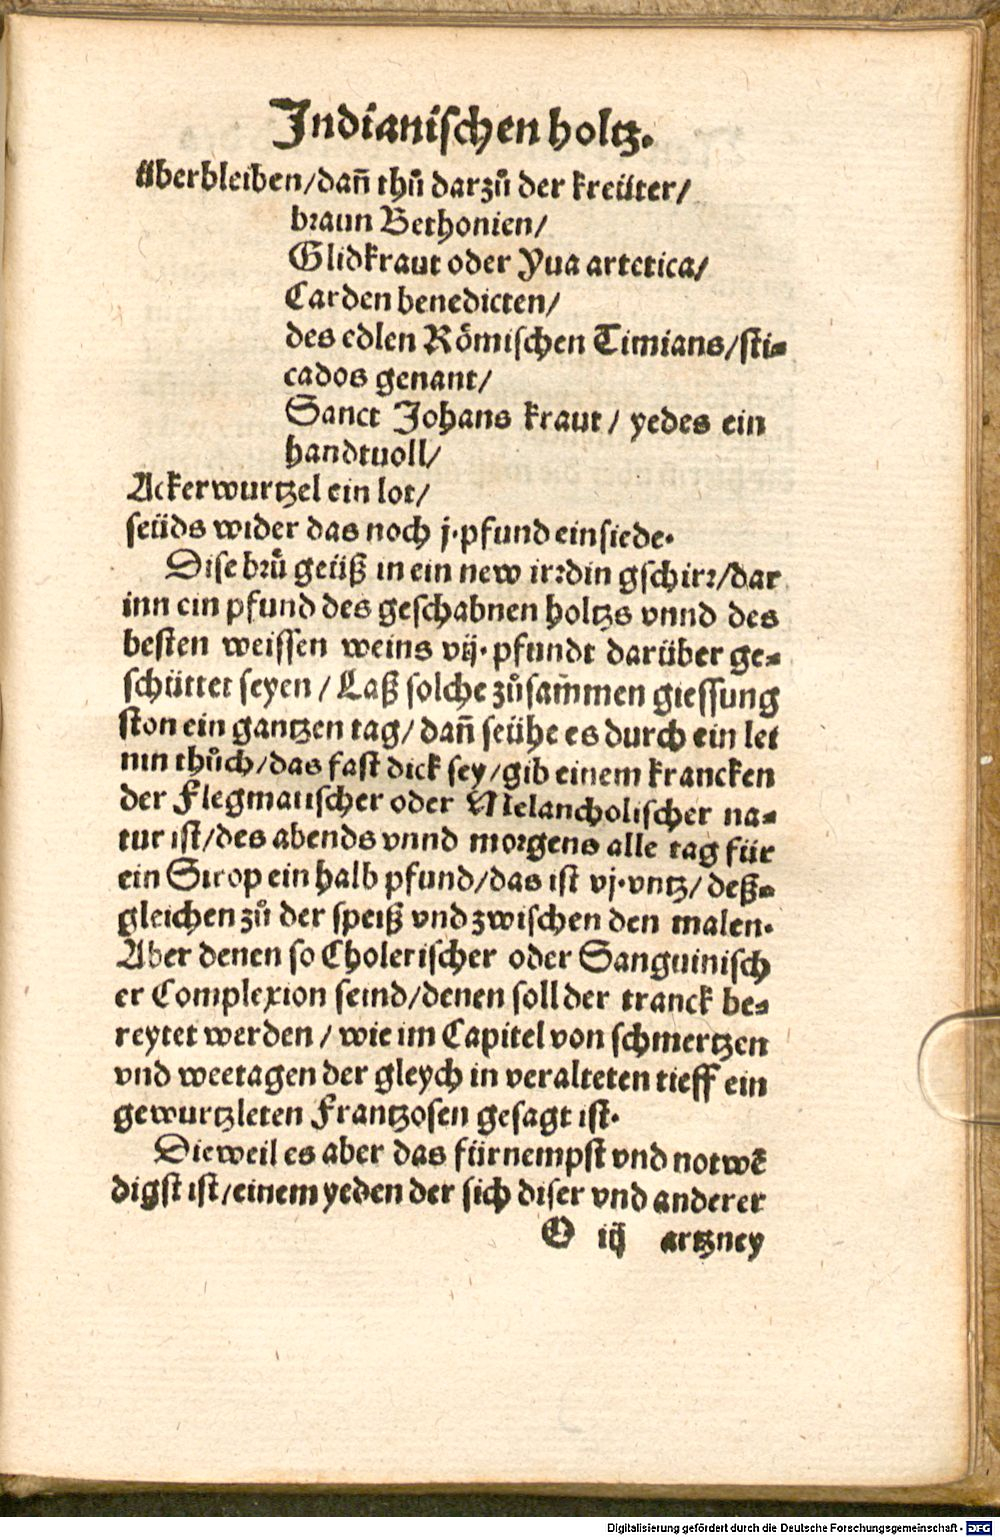 Indianischen holtz.
überbleiben/dañ thů darzů der kreüter/
braun Bethonien/
Glidkraut oder Yua artetica/
Carden benedicten/
des edlen Römischen Timians/sti⸗
cados genant/
Sanct Johans kraut/ yedes ein
handtuoll/
Ackerwurtzel ein lot/
seüds wider das noch j.pfund einsiede.
Dise brů geüß in ein new irrdin gschirr/dar
inn ein pfund des geschabnen holtzs vnnd des
besten weissen weins vij. pfundt darüber ge⸗
schüttet seyen / Laß solche zůsam̃men giessung
ston ein gantzen tag/ dañ seühe es durch ein lei
nin thůch/das fast dick sey/gib einem krancken
der Flegmatischer oder Melancholischer na⸗
tur ist/des abends vnnd morgens alle tag für
ein Sirop ein halb pfund/das ist vj.vntz/ deß⸗
gleichen zů der speiß vnd zwischen den malen.
Aber denen so Cholerischer oder Sanguinisch
er Complexion seind/denen soll der tranck be⸗
reytet werden / wie im Capitel von schmertzen
vnd weetagen der gleych in veralteten tieff ein
gewurtzleten Frantzosen gesagt ist.
Dieweil es aber das fürnempst vnd notwẽ
digst ist/einem yeden der sich diser vnd anderer
O iij artzney
Digitalisierung gefördert durch die Deutsche Forschungsgemeinschaft - DFG